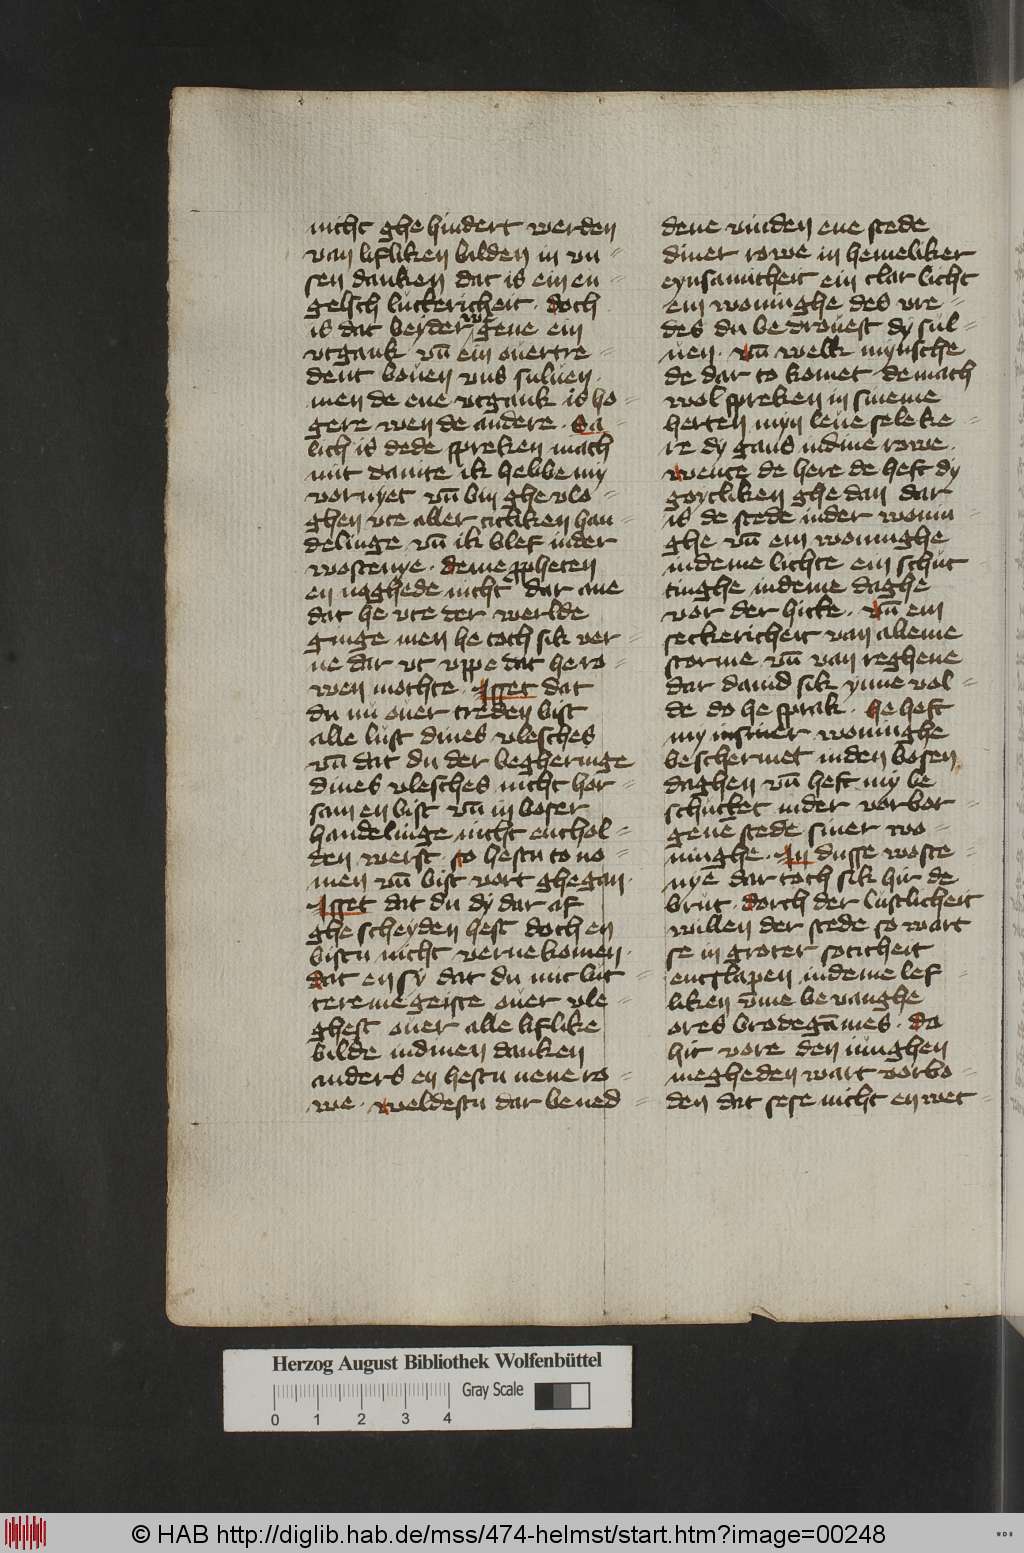 nicht ghe hindert werden
van lifliken bilden in vn=
sen danken dat is ein en
gelsch luckericheit · doch
is dat beyder wegene ein
vtgank vn̄ ein ouertre=
dent bouen vns suluen ·
men de ene vtgank is ho=
gere wen de andere · Sa=
lich is dede spreken mach
mit dauite ik hebbe my
vornyet vn̄ bin ghe vlo=
ghen vte aller titliken han=
delinge vn̄ ik blef in der
wostenye · deme ppheten
en nøghede nicht dar ane
dat he vte der werlde
ginge men he toch sik ver=
ne dar vt vppe dat he ro=
wen mochte · Isset dat
du nu ouer treden bist
alle lust dines vlesches
vn̄ dat du der begheringe
dines vlesches nicht hor=
sam en bist vn̄ in boser
handelinge nicht enthol=
den werst · so hestu to no=
men vn̄ bist vort ghegan ·
Isset dat du dy dar af
ghe scheyden hest doch en
bistu nicht verne komen ·
dat en sy dat du mit lut=
tereme geiste ouer vle=
ghest ouer alle liflike
bilde in dinen danken
anders en hestu nene ro=
we · weldestu dar bened=
dene vinden ene stede
diner rowe in hemeliker
eynsamicheit ein clar licht
ein woninghe des vre=
des du bedrouest dy sul=
uen · vn̄ welk mynsche
de dar to komet de mach
wol spreken in sineme
herten myn leue sele ke=
re dy gans in dine rowe ·
wente de here de heft dy
gotliken ghe dan dar
is de stede in der wonin=
ghe vn̄ ein woninghe
in deme lichte ein schut=
tinghe in deme daghe
vor der hicke · vn̄ ein
seckericheit van alleme
storme vn̄ van reghene
dar dauid sik ynne vol=
de do he sprak · he heft
my in siner woninghe
beschermet in den bosen
daghen vn̄ heft my be
schucket in der vorbor=
gene stede siner wo=
ninghe · In dusse woste=
nyē dar toch sik hir de
brut · dorch der lustlicheit
willen der stede so wart
se in groter soticheit
entslapen in deme lef=
liken vm̄e bevanghe
ores brodegāmes · do
hir vore den iunghen
megheden wart vorbo=
den dat se se nicht en wet=
Herzog August Bibliothek Wolfenbüttel
0 1 2 3 4
Gray Scale
© HAB http://diglib.hab.de/mss/474-helmst/start.htm?image=00248
WDB